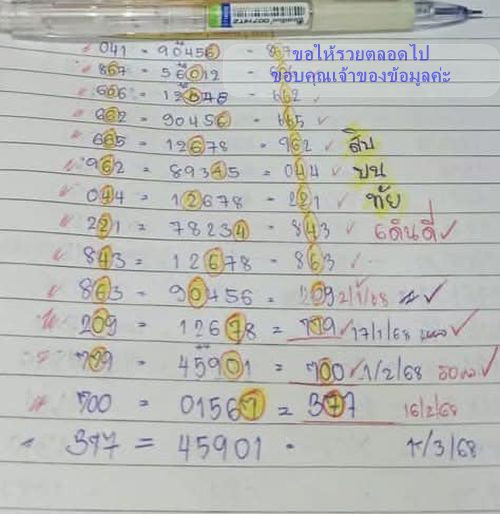 ขอให้รวยตลอดไป
ขอบคุณเจ้าของข้อมูลค่ะ
041 = 90456 - 867
867 = 56012 -
666 - 12678 - 662
962 - 90456 - 665
665 - 12678 - 962 สิบ
962 = 89345 = 044 บน
044 - 12678 - 221 ทัย
221 - 78234 - 843 6ดินดี่
843 - 12678 - 863
863 - 90456 - 209 2/1/68
209 - 12678 = 779 17/1/68
779 - 45901 = 700 1/2/68
700 = 01567 = 377 16/2/68
377 = 45901 - 1/3/68